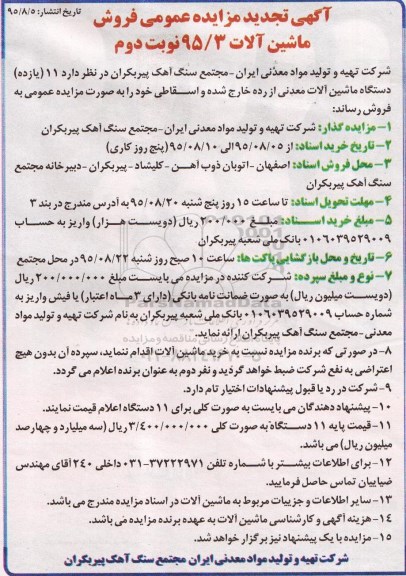 آگهی تجدید مزایده عمومی فروش
ماشین آلات ۹۵/۳ نوبت دوم
تاریخ انتشار: ۹۵/۸/۵
شرکت تهیه و تولید مواد معدنی ایران -مجتمع سنگ آهک پیربکران در نظر دارد ۱۱ (یازده)
دستگاه ماشین آلات معدنی از رده خارج شده و اسقاطی خود را به صورت مزایده عمومی به
فروش رساند:
۱-مزایده گذار: شرکت تهیه و تولید مواد معدنی ایران -مجتمع سنگ آهک پیربکران
۲-تاریخ خرید اسناد: از ۹۵/۰۸/۰۵ الی ۹۵/۰۸/۱۰ (پنج روز کاری)
۳-محل فروش اسناد: اصفهان -اتوبان ذوب آهن - کلیشاد - پیربکران -دبیرخانه مجتمع
سنگ آهک پیربکران
۴- مهلت تحویل اسناد: تا ساعت ۱۵ روز پنج شنبه ۹۵/۰۸/۲۰ به آدرس مندرج در بند ۳
۵-مبلغ خرید اسناد: مبلغ ۲۰۰/۰۰۰ ریال (دویست هزار) واریز به حساب
۰۱۰۶۰۳۹۵۲۹۰۰۹ بانک ملی شعبه پیربکران
۶-تاریخ و محل بازگشایی پاکت ها: ساعت ۱۰ صبح روز شنبه ۹۵/۰۸/۲۲ در محل مجتمع
۷-نوع و مبلغ سپرده: شرکت کننده در مزایده می بایست مبلغ ۲۰۰/۰۰۰/۰۰۰ ریال
(دویست میلیون ریال) به صورت ضمانت نامه بانکی (دارای ۳ ماه اعتبار) یا فیش واریز به
شماره حساب ۰۱۰۶۰۳۹۵۲۹۰۰۹ بانک ملی شعبه پیربکران به نام شرکت تهیه و تولید مواد
معدنی -مجتمع سنگ آهک پیربکران ارائه نماید.
۸-در صورتی که برنده مزایده نسبت به خرید ماشین آلات اقدام ننماید، سپرده آن بدون هیچ
اعتراضی به نفع شرکت ضبط خواهد گردید و نفر دوم به عنوان برنده اعلام می گردد.
۹-شرکت در رد یا قبول پیشنهادات اختیار تام دارد.
۱۰-پیشنهاد دهندگان می بایست به صورت کلی برای ۱۱ دستگاه اعلام قیمت نمایند.
۱۱-قیمت پایه ۱۱ دستگاه به صورت کلی ۳/۴۰۰/۰۰۰/۰۰۰ ریال (سه میلیارد و چهارصد
میلیون ریال) می باشد.
۱۲-برای اطلاعات بیشتر با شماره تلفن ۳۷۲۲۲۹۷۱-۰۳۱ داخلی ۲۴۰ آقای مهندس
ضیاییان تماس حاصل فرمایید.
۱۳-سایر اطلاعات و جزییات مربوط به ماشین آلات در اسناد مزایده مندرج می باشد.
۱۴-هزینه آگهی و کارشناسی ماشین آلات به عهده برنده مزایده می باشد.
۱۵-مزایده با یک پیشنهاد نیز برگزار خواهد شد.
شرکت تهیه و تولید مواد معدنی ایران مجتمع سنگ آهک پیربکران